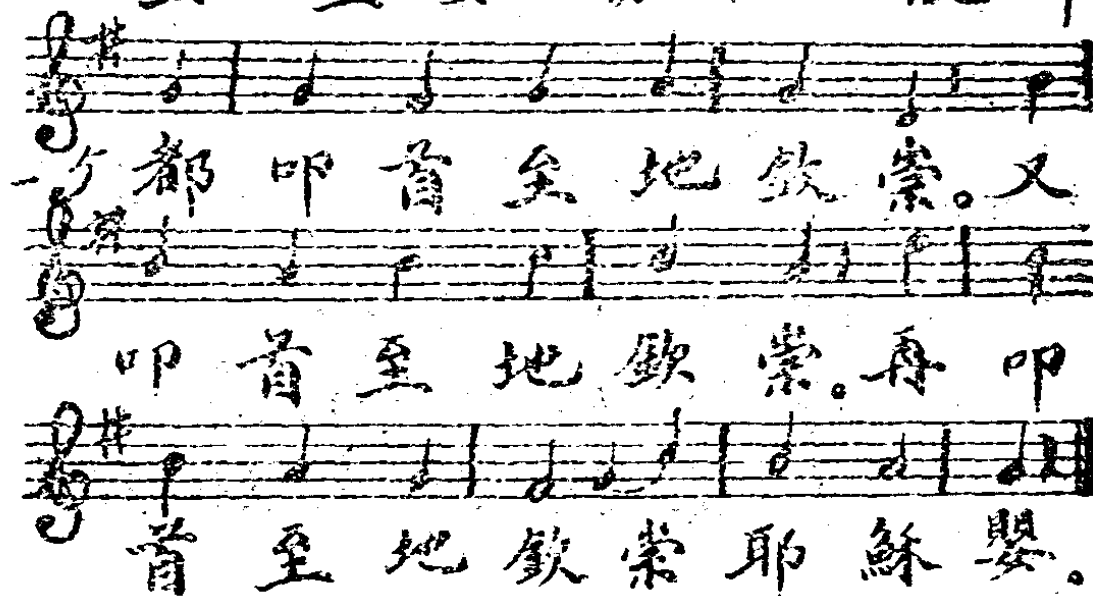 一个都叩首至地欽崇。又
叩首至地欽崇。再叩
首至地欽崇耶穌嬰。